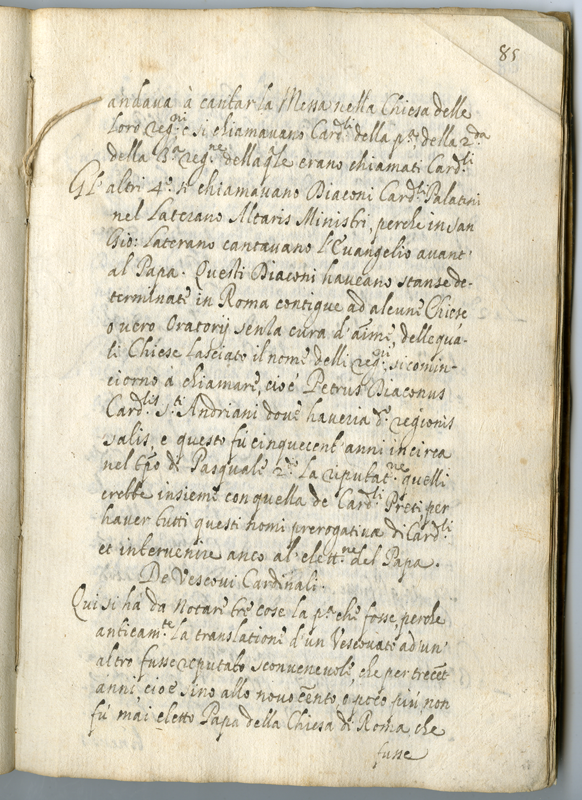 85
andava à cantar la Messa nella Chiesa delle
loro reg.ni e si chiamavano Card.li della p.a della 2.da
della 3.a reg.ne dellaq̃le erano chiamati Card.li
Gl' altri 4.o si chiamavano Diaconi Card.li Palatini
nel Laterano Altaris Ministri, perche in San
Gio: Laterano cantavano l'Evangelio avant'
al Papa. Questi Diaconi haveano stanse de-
terminate in Roma contigue ad alcune Chiese
o vero Oratorij senza cura d'aime, delle quá-
li Chiese lasciato il nome delli reg.ni si comin-
ciorno à chiamare, cioè Petrus Diaconus
Card.lis S.ti Andriani dove haveria d.o regionis
salis, e questo fù cinquecent' anni incirca
nel tp̃o di Pasquale 2.do La reputat.ne quelli
crebbe insieme con quella de Card.li Preti, per
haver tutti questi nomi prerogativa di Card.li
et intervenire anco al' elett.ne del Papa.
De Vescovi Cardinali.
Qui si ha da notare tre cose la p.a che fosse, perche
anticam.te la translatione d'un Vescovato ad un'
altro fusse reputato sconvenevole che per trecẽt
anni cioè sino allo novocẽnto, o poco più non
fù mai eletto Papa della Chiesa di Roma che
fusse